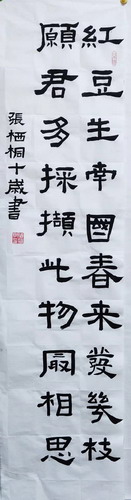 紅豆生南國春來發幾枝
願君多採擷此物最相思
張栖桐十歲書